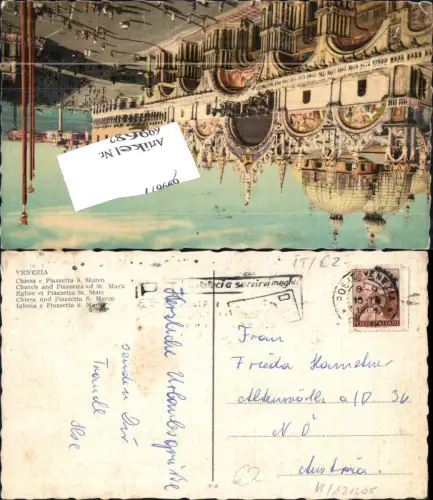 Artikel Nr.
699682
69967/
IT/62-
VENEZIA
Chiesa e Piazzetta S. Marco
Church and Piazzetta of St. Mark
Eglise et Piazzetta St. Marc
Chiesa und Piazzetta S. Marco
Iglesia y Piazzetta S. Marco
a servirvi meglio
POSTE ITALIANE
Herzliche Urlaubsgrüße
senden Dir
Traudl
Ilse
Frau
Frieda
Altenwörth a/D 36
N Ö
Austria.